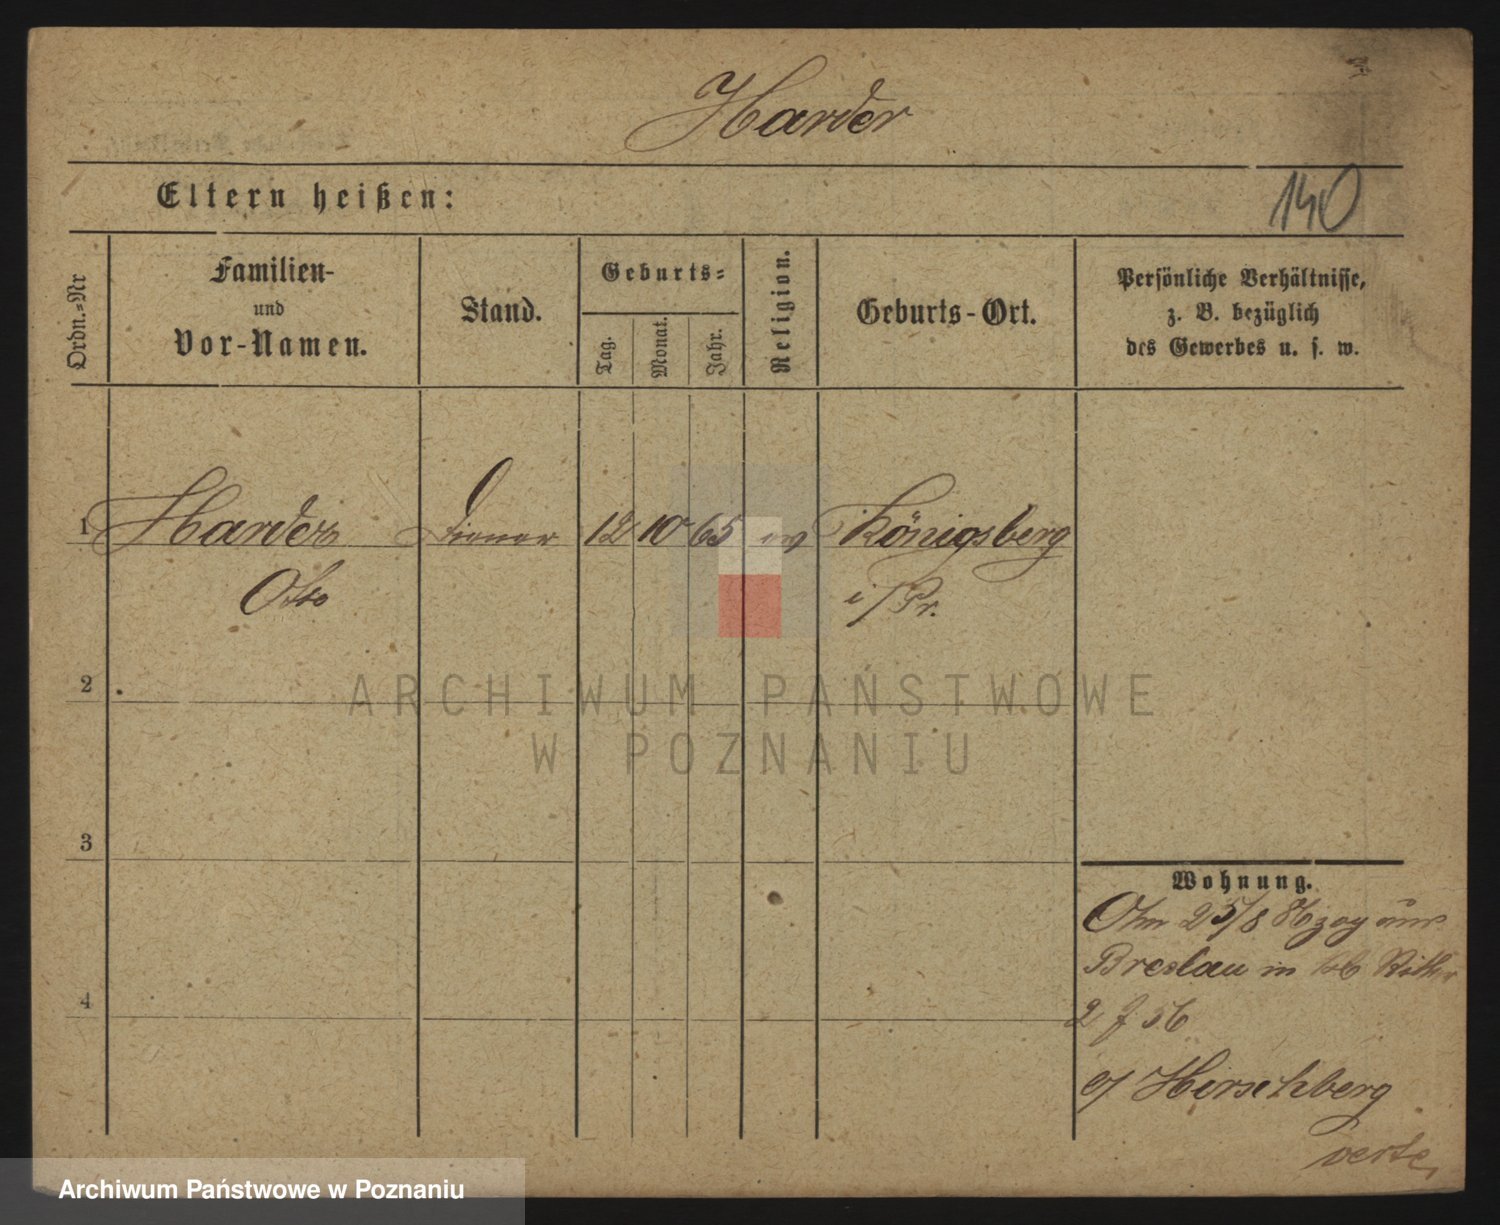 Harder
Eltern heißen:
140
Ordn.-Nr
Familien-
und
Vor-Namen.
Stand.
Geburts-
Tag.
Monat.
Jahr.
Religion.
Geburts-Ort.
Persönliche Verhältnisse,
z. B. bezüglich
des Gewerbes u. s. w.
1 Harder Diener 12 10 65 ev Königsberg
Otto i/Pr.
2
ARCHIWUM PAŃSTWOWE
W POZNANIU
3
Wohnung.
25/8 zog aus
Breslau in
4
2 f 56
Hirschberg
verte
Archiwum Państwowe w Poznaniu